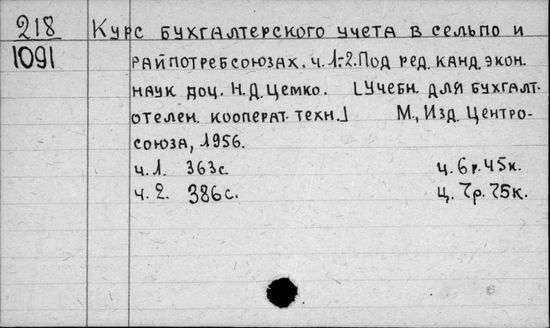 218
1091
Курс бухгалтерского учета в сельпо и
райпотребсоюзах. ч. 1-2. Под ред. канд. экон.
наук доц. Н.Д. Цемко. [Учебн. для бухгалт.
отелен. кооперат. техн.] М., Изд. Центро-
союза, 1956.
ч. 1. 363с. ц. 6р. 45к.
ч. 2. 386с. ц. 7р. 75к.